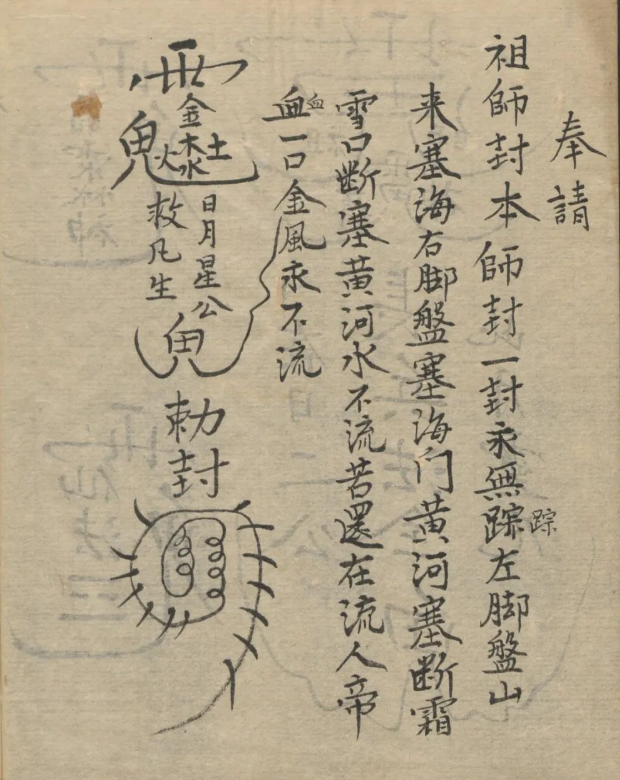 奉請
祖師封本師封一封永無踪踪左脚盤山
来塞海右脚盤塞海门黄河塞断霜
雪口断塞黄河水不流若還在流人帝
血血一口金風永不流
金木水火土
日月星公
救凡生
勅封